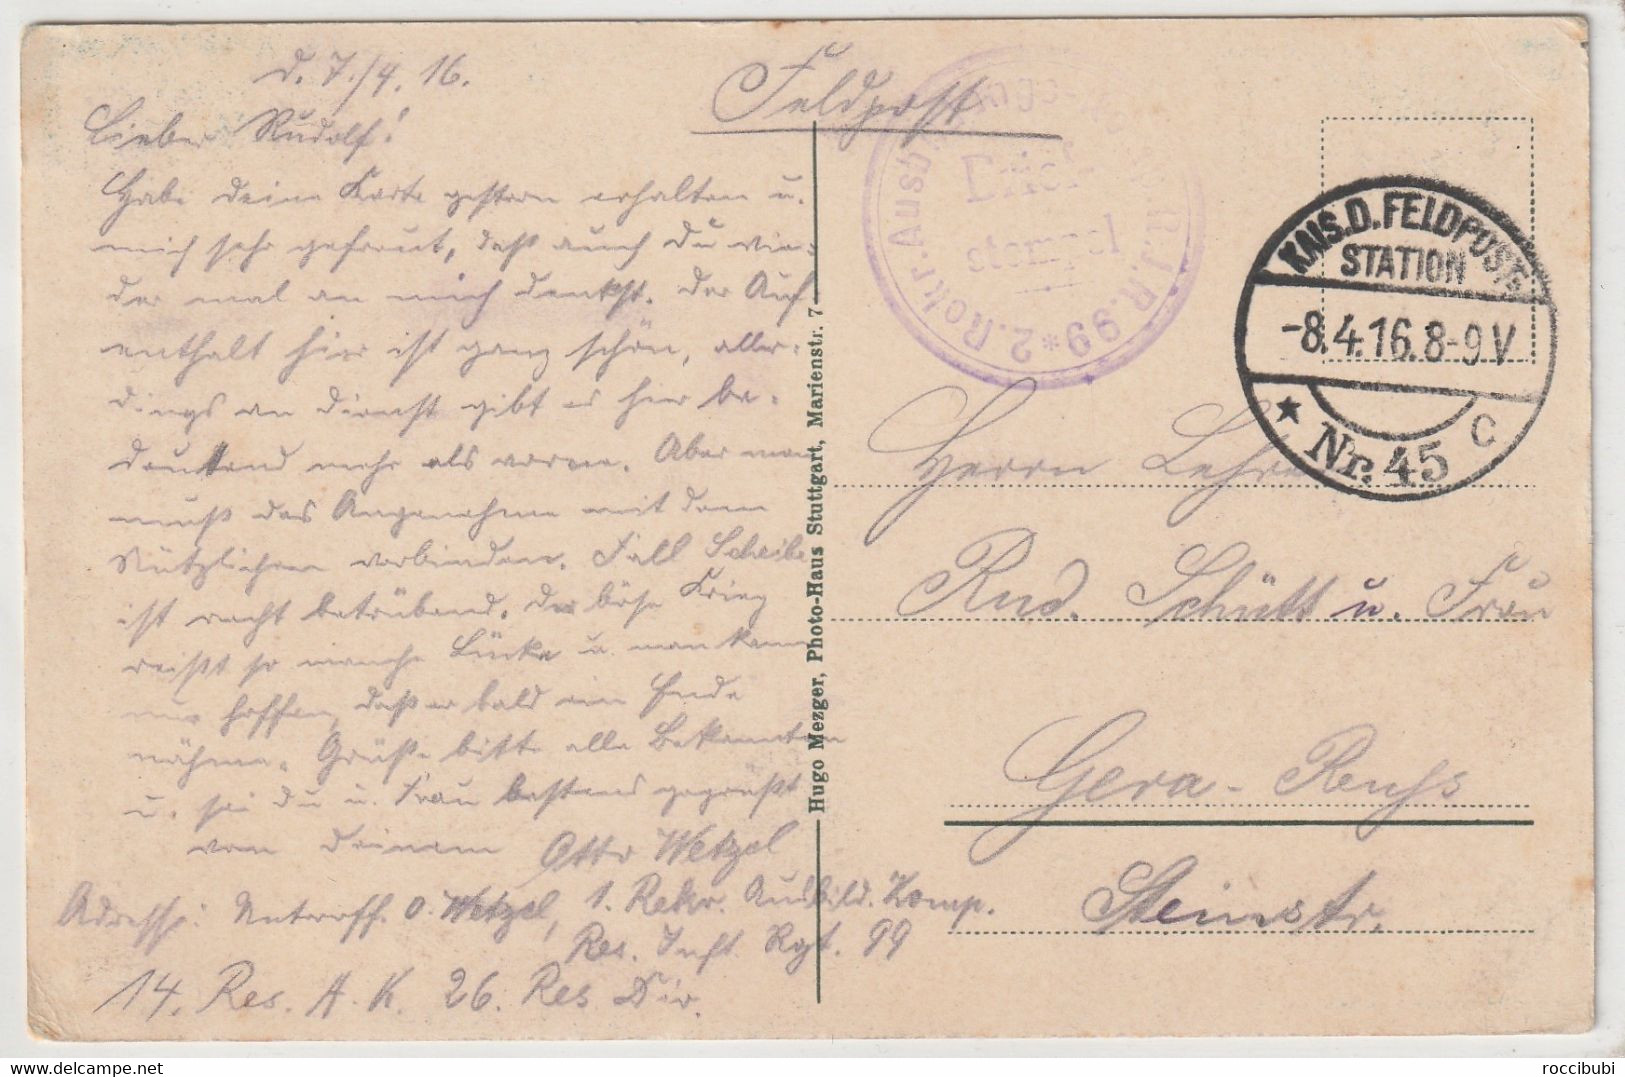 d. 7./4. 16.
Feldpost
Lieber Rudolf!
Habe deine Karte gestern erhalten u.
mich sehr gefreut, daß auch Du wie-
der mal an mich denkst. Der Auf
enthalt hier ist ganz schön, aller-
dings an Dienst gibt es hier be-
deutend mehr als vorne. Aber man
muß das Angenehme mit dem
Nützlichen verbinden. Fall Scheibe
ist recht betrübend. Der böse Krieg
reißt so manche Lücke u. man kann
nur hoffen, daß er bald ein Ende
nähme. Grüße bitte alle Bekannten
u. sei Du u. Frau bestens gegrüßt
von Deinem Otto Wetzel
Adresse: Unteroff. O. Wetzel, 1. Rekr. Ausbild. Komp.
Res. Inft. Rgt. 99
14. Res. A. K. 26. Res. Div.
Hugo Mezger, Photo-Haus Stuttgart, Marienstr. 7
2. Rekr. Ausb R.J.R. 99 *
Brief
stempel
KAIS. D. FELDPOST
STATION
-8.4.16. 8-9 V
* Nr. 45 C
Herrn Lehrer
Rud. Schütt u. Frau
Gera-Reuss
Steinstr.
roccibubi